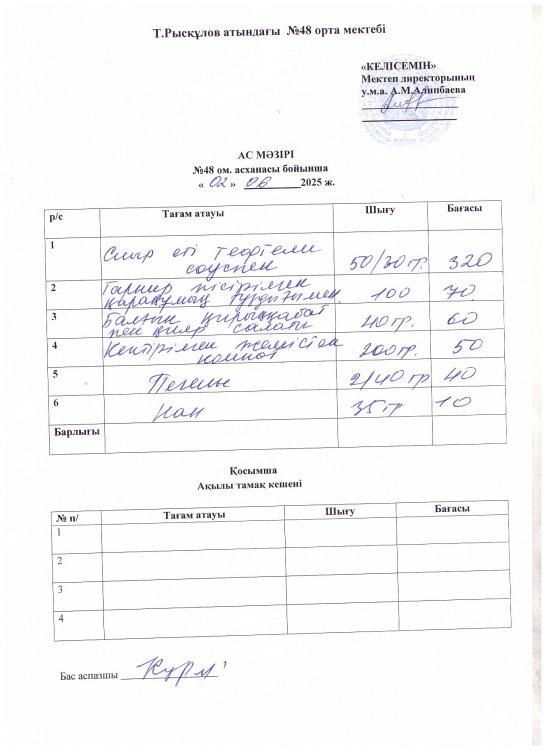 Т.Рысқұлов атындағы №48 орта мектебі
«КЕЛІСЕМІН»
Мектеп директорының
у.м.а. А.М.Алипбаева
АС МӘЗІРІ
№48 ом. асханасы бойынша
« 02 » 06 2025 ж.
р/с Тағам атауы Шығу Бағасы
1 Сиыр еті тефтели
соуспен 50/30 гр. 320
2 Гарнир пісірілген
қарақұмық 100 70
3 Балғын қырыққабат
пен қияр салаты 40 гр. 60
4 Кептірілген жемістен
компот 200 гр. 50
5 Печенье 2/40 гр 40
6 Нан 35 гр 10
Барлығы
Қосымша
Ақылы тамақ кешені
№ п/ Тағам атауы Шығу Бағасы
1
2
3
4
Бас аспазшы